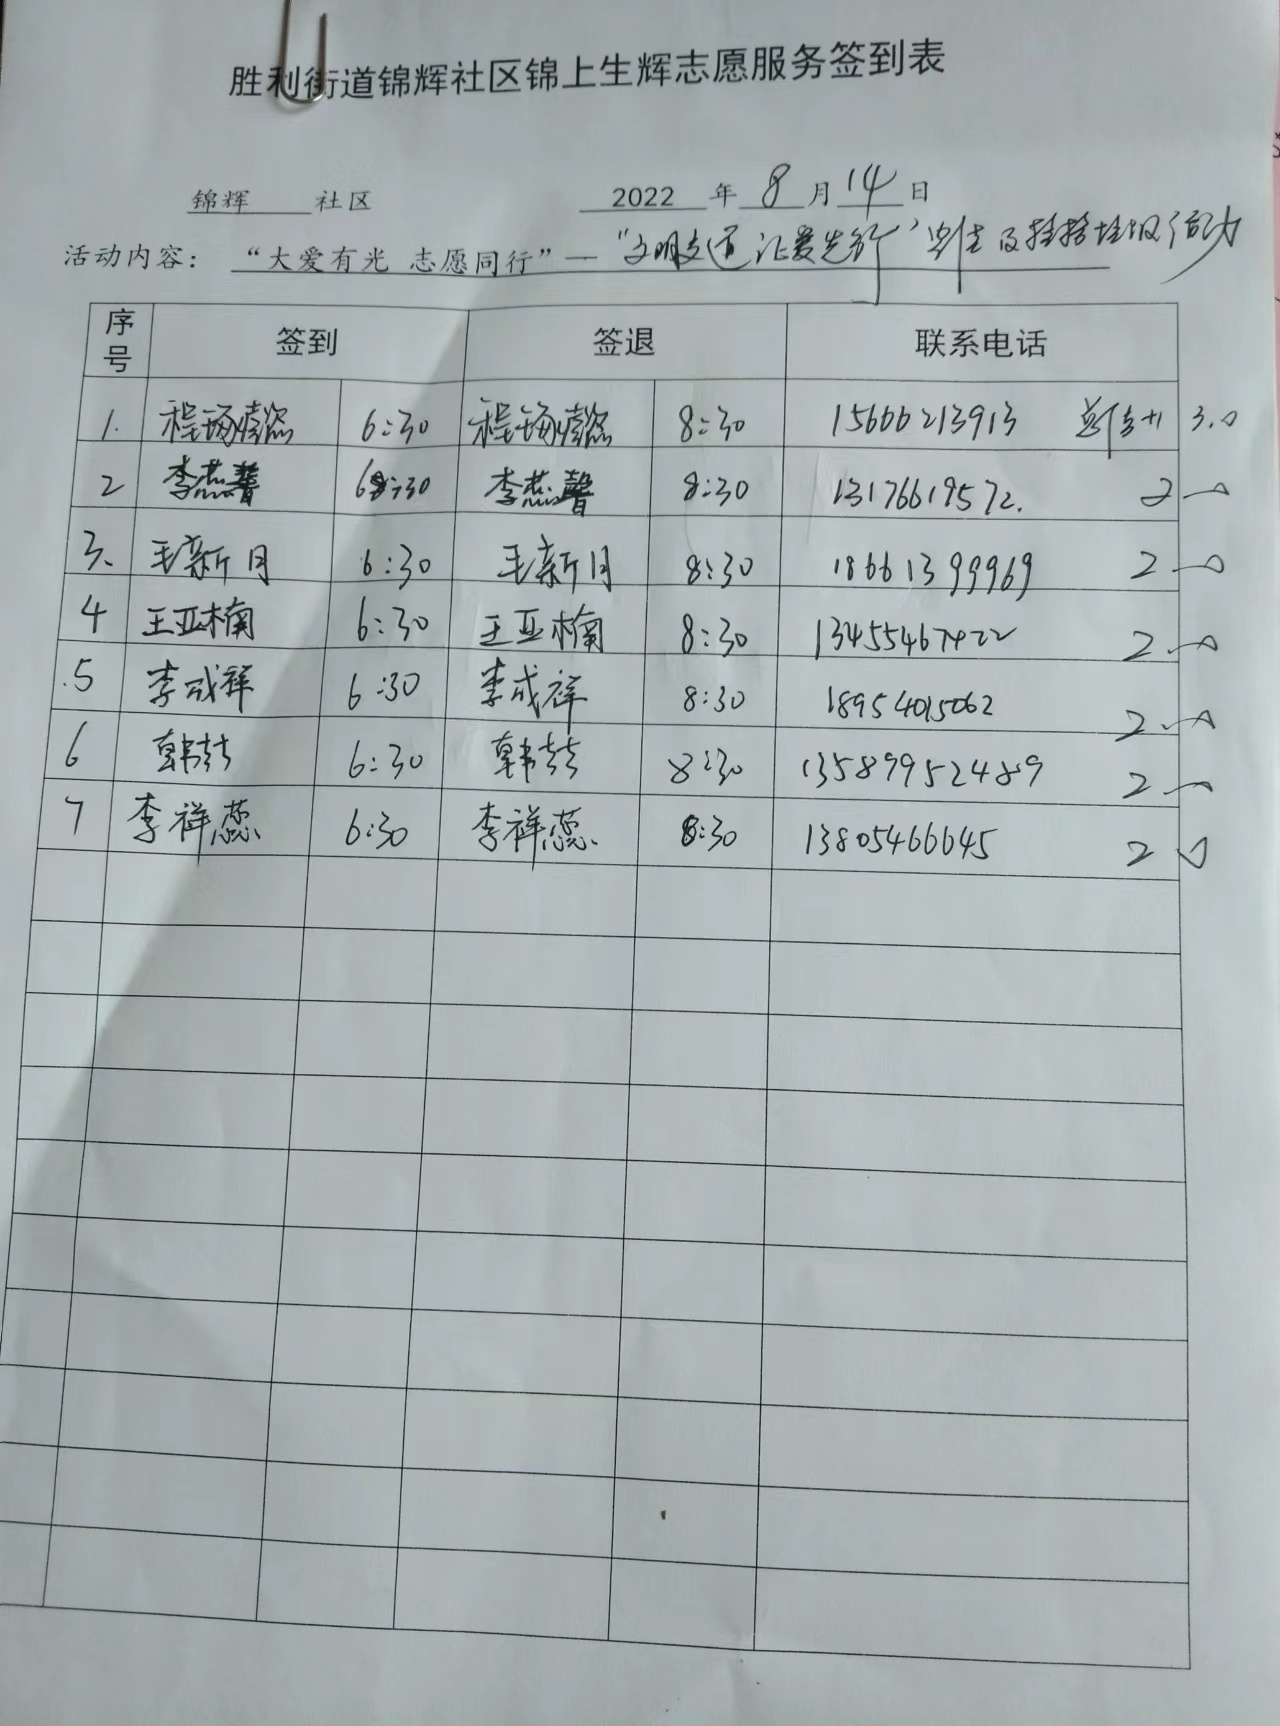 胜利街道锦辉社区锦上生辉志愿服务签到表
锦辉 社区 2022 年 8 月 14 日
活动内容： “大爱有光 志愿同行”— “文明交通 让爱先行” 及捡拾垃圾活动
序号 签到 签退 联系电话
1. 6:30 8:30 15666213913 3.0
2 李燕馨 6:30 李燕馨 8:30 13176619572. 2.0
3. 王新月 6:30 王新月 8:30 18661399969 2.0
4 王亚楠 6:30 王亚楠 8:30 2.0
5 李成祥 6:30 李成祥 8:30 18954015062 2.0
6 韩喆 6:30 韩喆 8:30 13589952489 2.0
7 李祥蕊 6:30 李祥蕊 8:30 13805466645 2.0